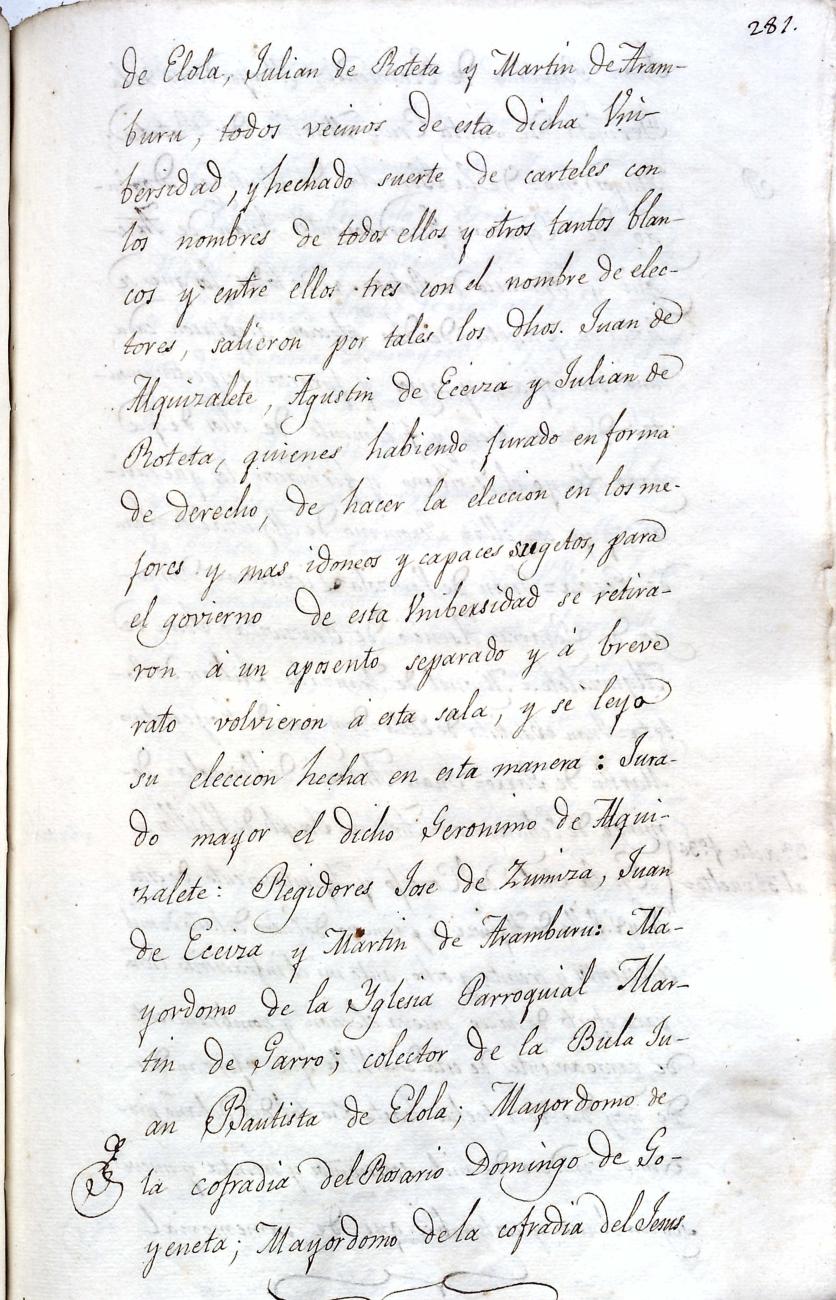 281.
de Elola, Julian de Roteta y Martin de Aram-
buru, todos vecinos de esta dicha Vni-
bersidad, y hechado suerte de carteles con
los nombres de todos ellos y otros tantos blan-
cos y entre ellos tres con el nombre de elec-
tores, salieron por tales los dhos. Juan de
Alquizalete, Agustin de Eceiza y Julian de
Roteta, quienes habiendo jurado en forma
de derecho, de hacer la eleccion en los me-
jores y mas idoneos y capaces sugetos, para
el govierno de esta Vnibersidad se retira-
ron á un aposento separado y á breve
rato volvieron á esta sala, y se leyo
su eleccion hecha en esta manera: Jura-
do mayor el dicho Geronimo de Alqui-
zalete: Regidores Jose de Zumiza, Juan
de Eceiza y Martin de Aramburu: Ma-
yordomo de la Yglesia Parroquial Mar-
tin de Garro; colector de la Bula Ju-
an Bautista de Elola; Mayordomo de
la cofradia del Rosario Domingo de Go-
yeneta; Mayordomo de la cofradia del Jesus